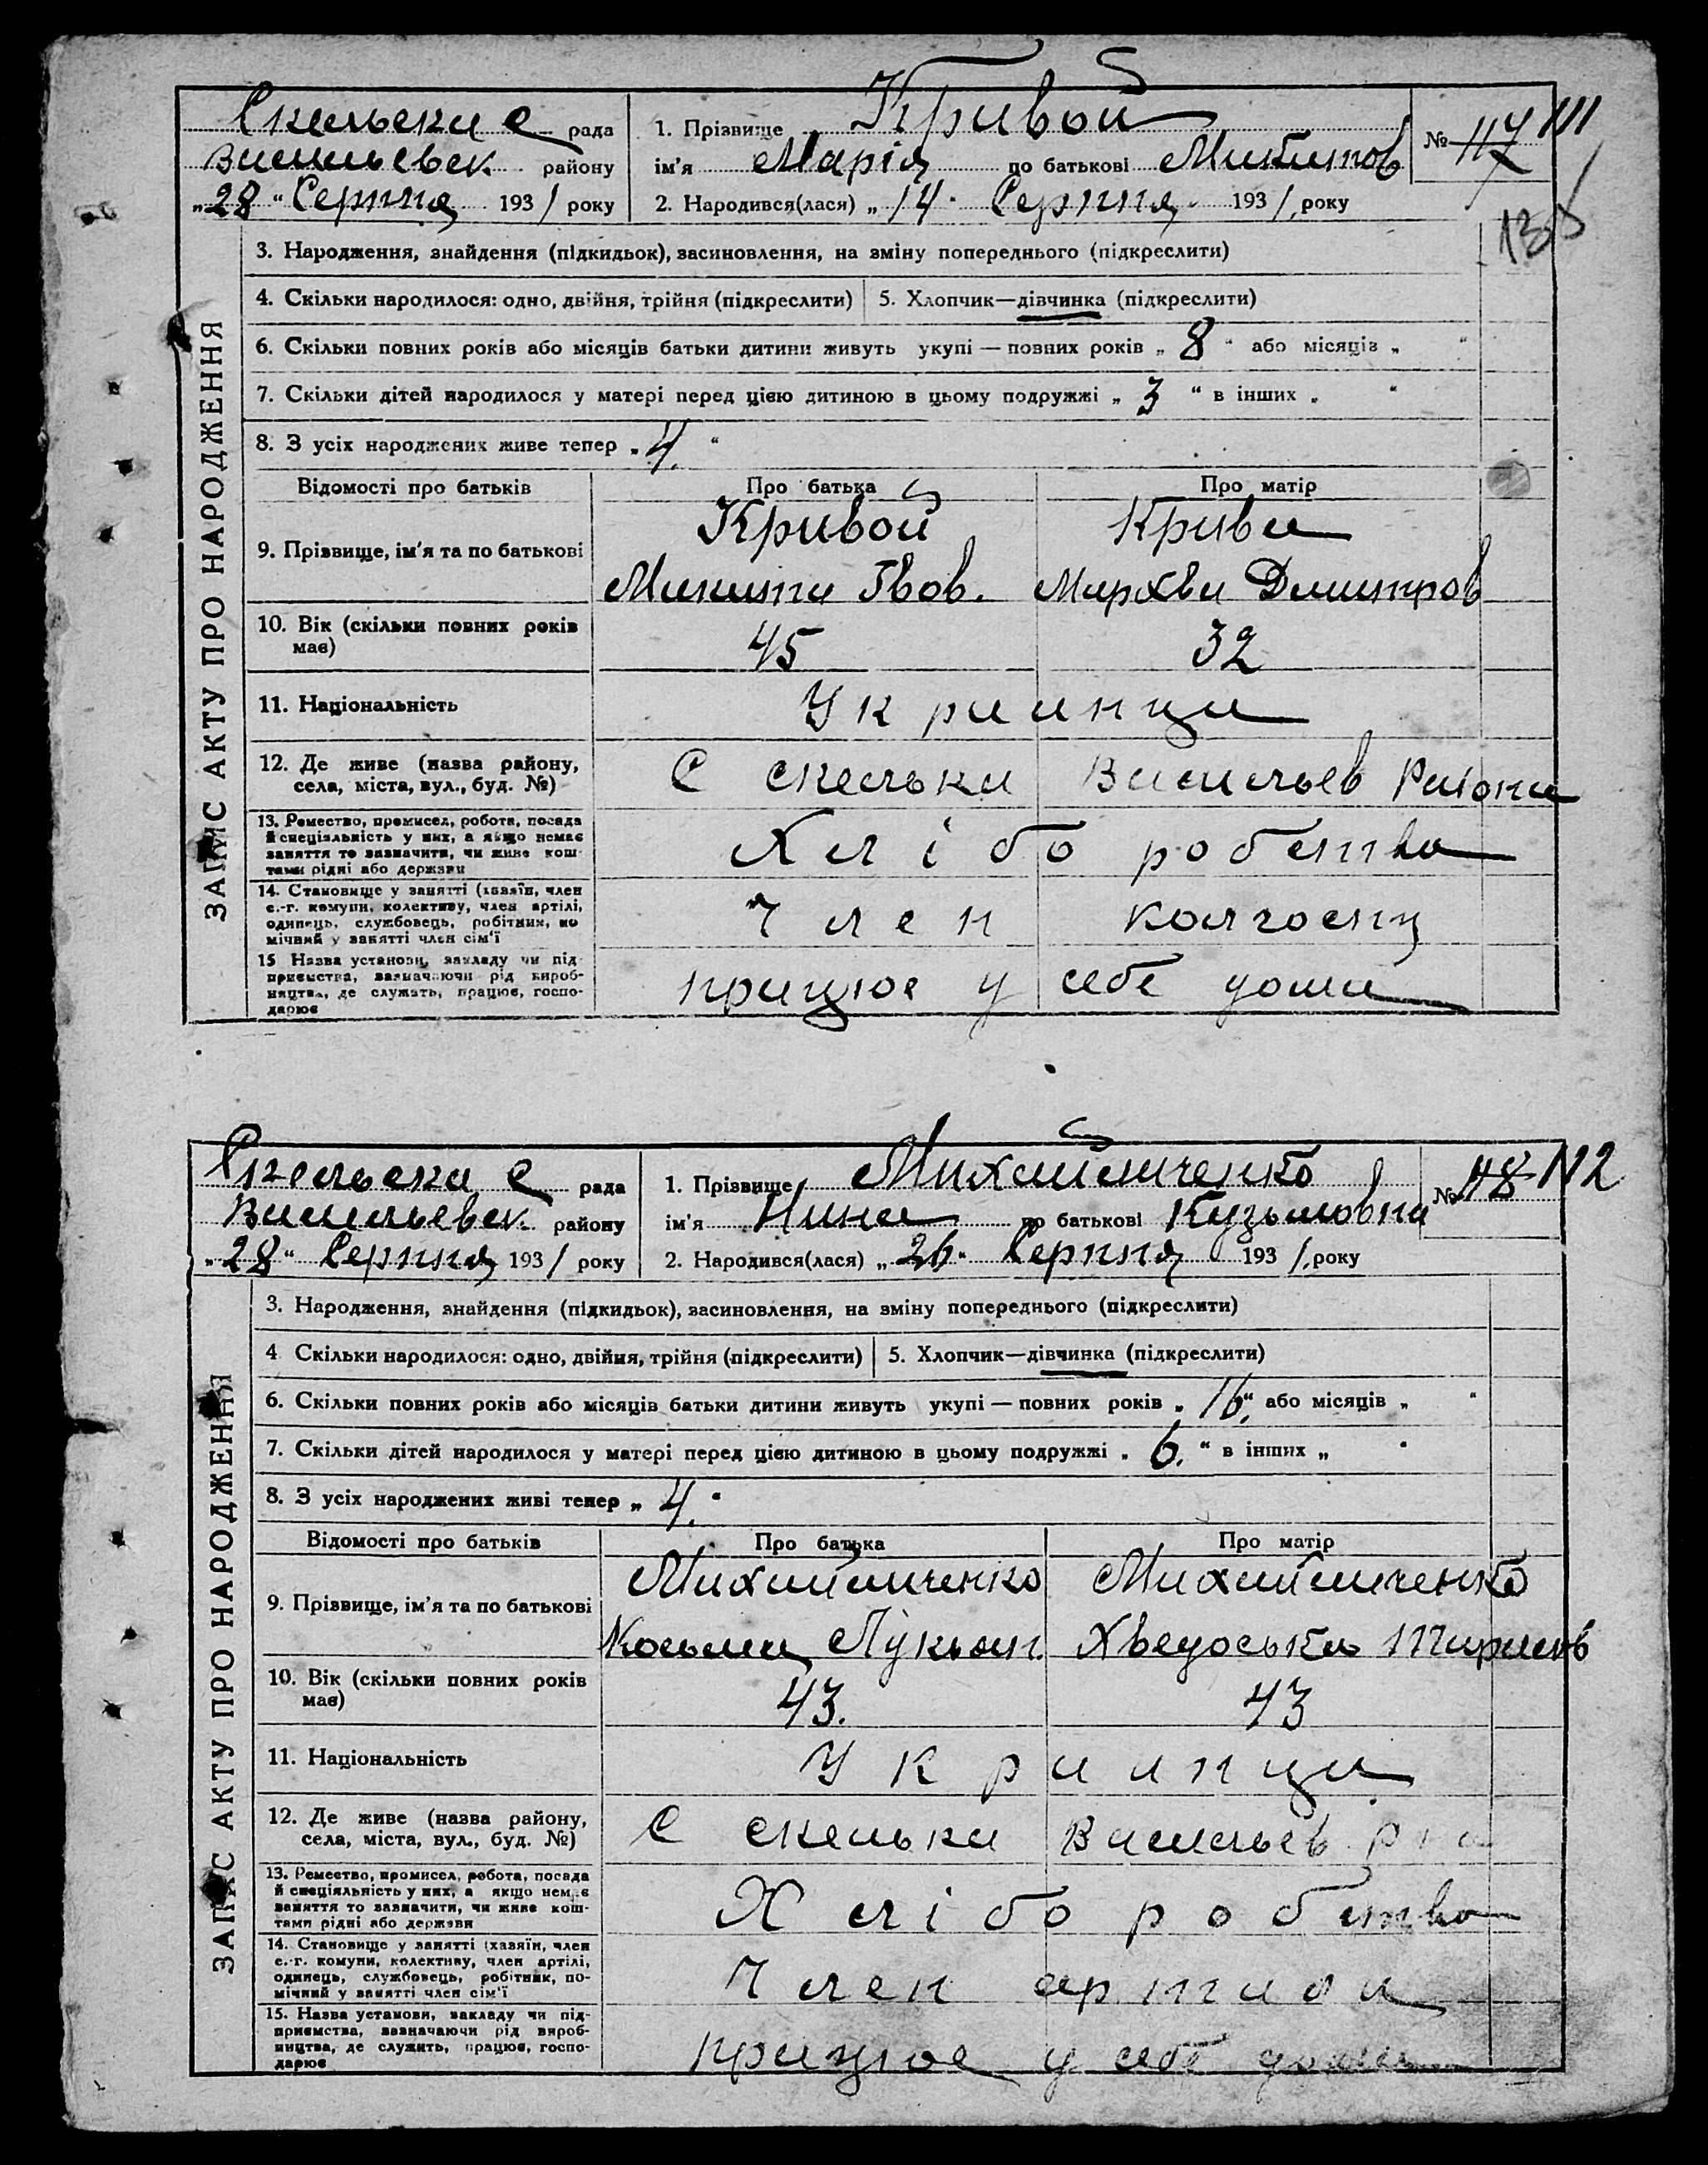 Скельска с рада
Васильевск. району
„28" Серпня 1931 року
1. Прізвище Кривой
ім'я Марія по батькові Микитов
2. Народився(лася) „14" Серпня 1931 року
№ 117 111
135
ЗАПИС АКТУ ПРО НАРОДЖЕННЯ
3. Народження, знайдення (підкидьок), засиновлення, на зміну попереднього (підкреслити)
4. Скільки народилося: одно, двійня, трійня (підкреслити) 5. Хлопчик—дівчинка (підкреслити)
6. Скільки повних років або місяців батьки дитини живуть укупі — повних років „ 8 " або місяців „ "
7. Скільки дітей народилося у матері перед цією дитиною в цьому подружжі „ 3 " в інших „ "
8. З усіх народжених живе тепер „ 4. "
Відомості про батьків Про батька Про матір
9. Прізвище, ім'я та по батькові
Кривой Крива
Микита Івов. Мархва Дмитров
10. Вік (скільки повних років
має)
45 32
11. Національність Украинци
12. Де живе (назва району,
села, міста, вул., буд. №)
С скельки Васильев Района
13. Ремество, промисел, робота, посада
й спеціяльність у них, а якщо немає
заняття то зазначити, чи живе кош-
тами рідні або держави
Хліборобство
14. Становище у занятті (хазяїн, член
с.-г. комуни, колективу, член артілі,
одинець, службовець, робітник, по
мічний у занятті член сім'ї
Член колгоспу
15 Назва установи, закладу чи під
приємства, зазначаючи рід вироб-
ництва, де служить, працює, госпо-
дарює
працює у себе дома
Скельска с рада
Васильевск. району
„28" Серпня 1931 року
1. Прізвище Михайличенко
ім'я Нина по батькові Кузьмовна
2. Народився(лася) „26" Серпня 1931 року
№ 118 112
ЗАПИС АКТУ ПРО НАРОДЖЕННЯ
3. Народження, знайдення (підкидьок), засиновлення, на зміну попереднього (підкреслити)
4 Скільки народилося: одно, двійня, трійня (підкреслити) 5. Хлопчик—дівчинка (підкреслити)
6. Скільки повних років або місяців батьки дитини живуть укупі — повних років „ 16. " або місяців „ "
7. Скільки дітей народилося у матері перед цією дитиною в цьому подружжі „ 6. " в інших „ "
8. З усіх народжених живі тепер „ 4. "
Відомості про батьків Про батька Про матір
9. Прізвище, ім'я та по батькові
Михайличенко Михайличенко
Косьма Лукьян. Хведоська
10. Вік (скільки повних років
має)
43. 43
11. Національність Украинци
12. Де живе (назва району,
села, міста, вул., буд. №)
С скельки Васильев
13. Ремество, промисел, робота, посада
й спеціяльність у них, а якщо немає
заняття то зазначити, чи живе кош-
тами рідні або держави
Хліборобство
14. Становище у занятті (хазяїн, член
с.-г. комуни, колективу, член артілі,
одинець, службовець, робітник, по-
мічний у занятті член сім'ї
Член артили
15. Назва установи, закладу чи під-
приємства, зазначаючи рід вироб-
ництва, де служить, працює, госпо-
дарює
працює у себе дома